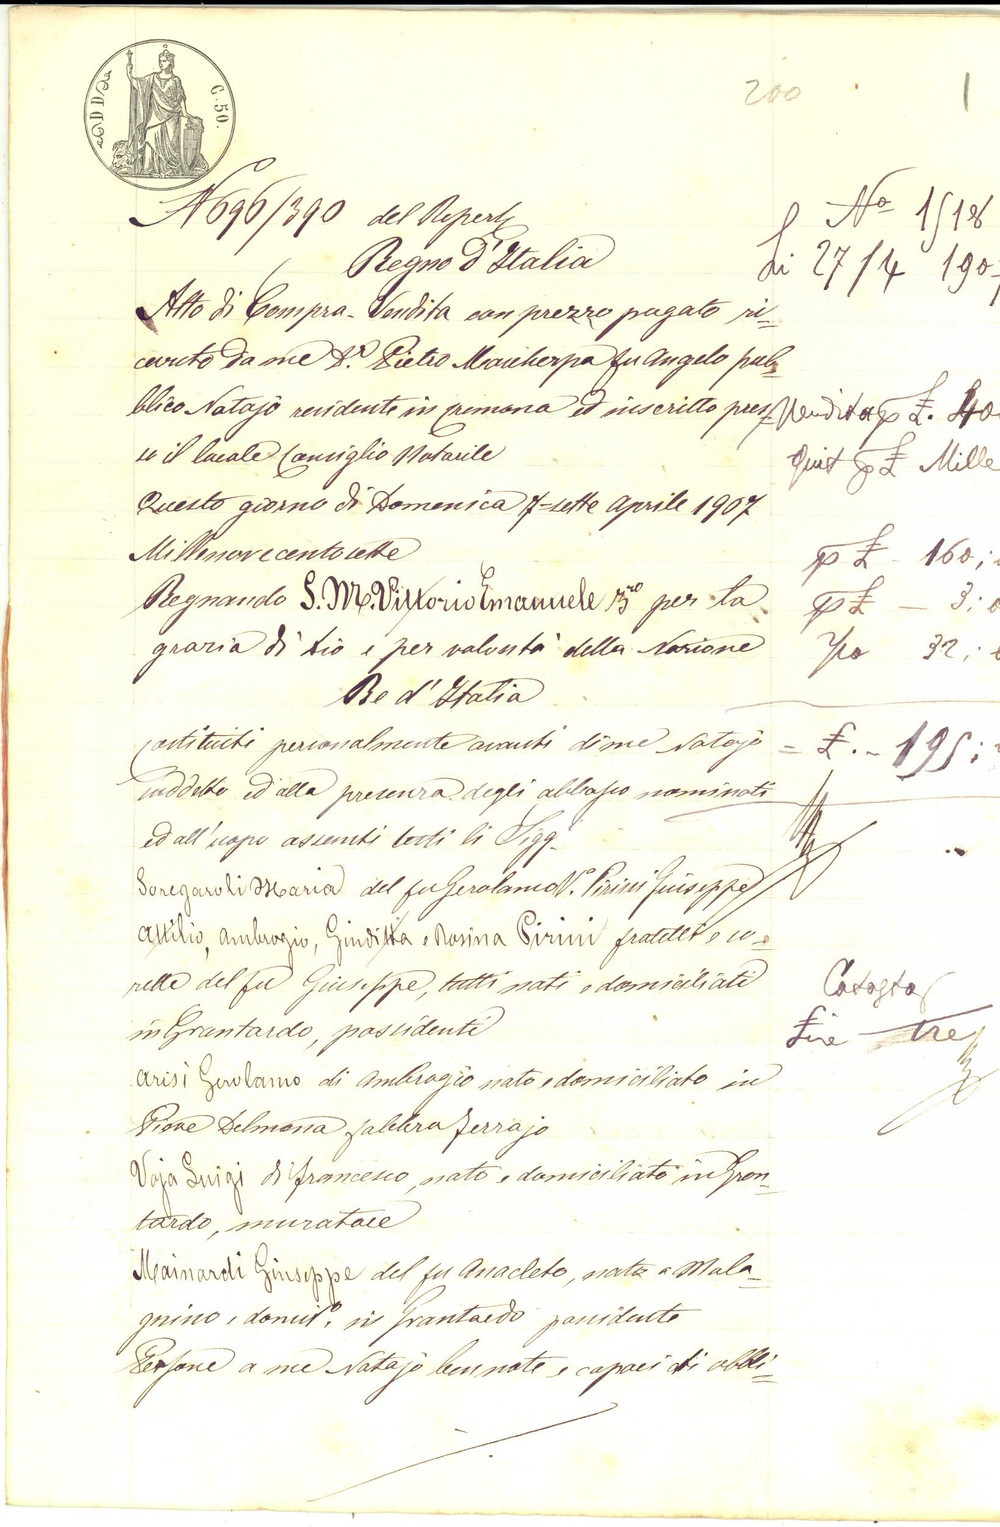 200
1
DD
C. 50.
N 696/390 del Repert
Regno d'Italia
Atto di Compra-Vendita con prezzo pagato ri=
cevuto da me D.r Pietro Mascherpa fu Angelo pub=
blico Notajo residente in Cremona ed inscritto pres=
so il locale Consiglio Notarile
Questo giorno di Domenica 7=sette Aprile 1907
Millenovecentosette
Regnando S. M. Vittorio Emanuele 3zo per la
grazia di Dio e per volontà della Nazione
Re d'Italia
Costituiti personalmente avanti di me Notajo
suddetto ed alla presenza degli abbasso nominati
ed all'uopo assunti testi li Sigg.
Soregaroli Maria del fu Gerolamo V.a Pirini Giuseppe
Attilio, Ambrogio, Giuditta e Rosina Pirini fratelli e so=
relle del fu Giuseppe, tutti nati e domiciliati
in Grontardo, possidenti
Arisi Gerolamo di Ambrogio nato e domiciliato in
Pieve Delmona, fabbro ferrajo
Voja Luigi di Francesco, nato e domiciliato in Gron=
tardo, muratore
Mainardi Giuseppe del fu Anacleto, nato a Mala=
gnino e domic.o in Grontardo possidente
Persone a me Notajo ben note e capaci di obbli=
No 1518
Li 27/4 190
Vendita p £. 40
Quit p £ Mille
p £ - 160;
p £ - 3;
32;
= £. - 195;
Catasto
Lire tre